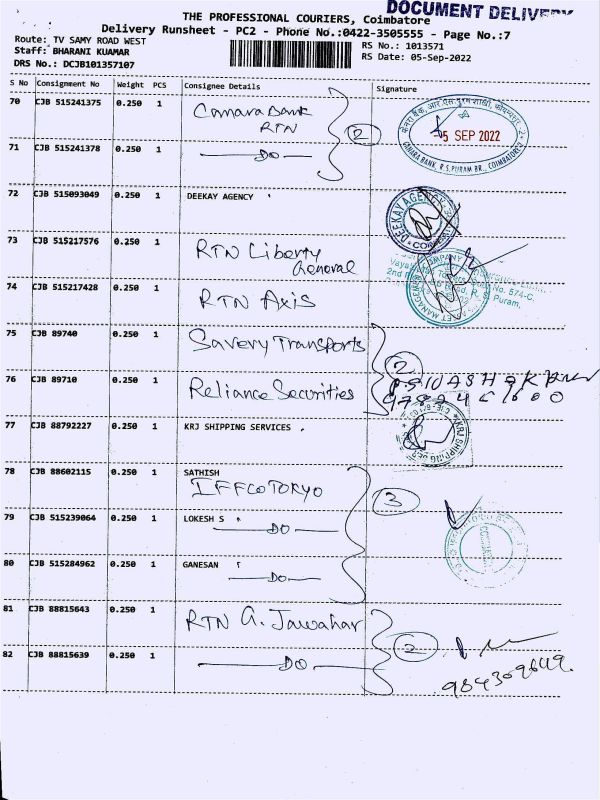 DOCUMENT DELIVERY
THE PROFESSIONAL COURIERS, Coimbatore
Delivery Runsheet - PC2 - Phone No.:0422-3505555 - Page No.:7
Route: TV SAMY ROAD WEST
RS No.: 1013571
Staff: BHARANI KUAMAR
RS Date: 05-Sep-2022
DRS No.: DCJB101357107
S No Consignment No Weight PCS Consignee Details Signature
70 CJB 515241375 0.250 1 Canara Bank
RTN
2
5 SEP 2022
CANARA BANK, R.S.PURAM BR., COIMBATORE
71 CJB 515241378 0.250 1 DO
72 CJB 515093049 0.250 1 DEEKAY AGENCY
DEEKAY AGENCY
73 CJB 515217576 0.250 1 RTN Liberty
General
No. 574-C,
2nd R. S. Puram,
74 CJB 515217428 0.250 1 RTN Axis
75 CJB 89740 0.250 1 Savery Transports
2
76 CJB 89710 0.250 1 Reliance Securities
77 CJB 88792227 0.250 1 KRJ SHIPPING SERVICES
KRJ SHIPPING
78 CJB 88602115 0.250 1 SATHISH
IFFCO TOKYO
3
79 CJB 515239064 0.250 1 LOKESH S
DO
80 CJB 515284962 0.250 1 GANESAN
DO
81 CJB 88815643 0.250 1 RTN G. Jawahar
2
82 CJB 88815639 0.250 1 DO
984309649.